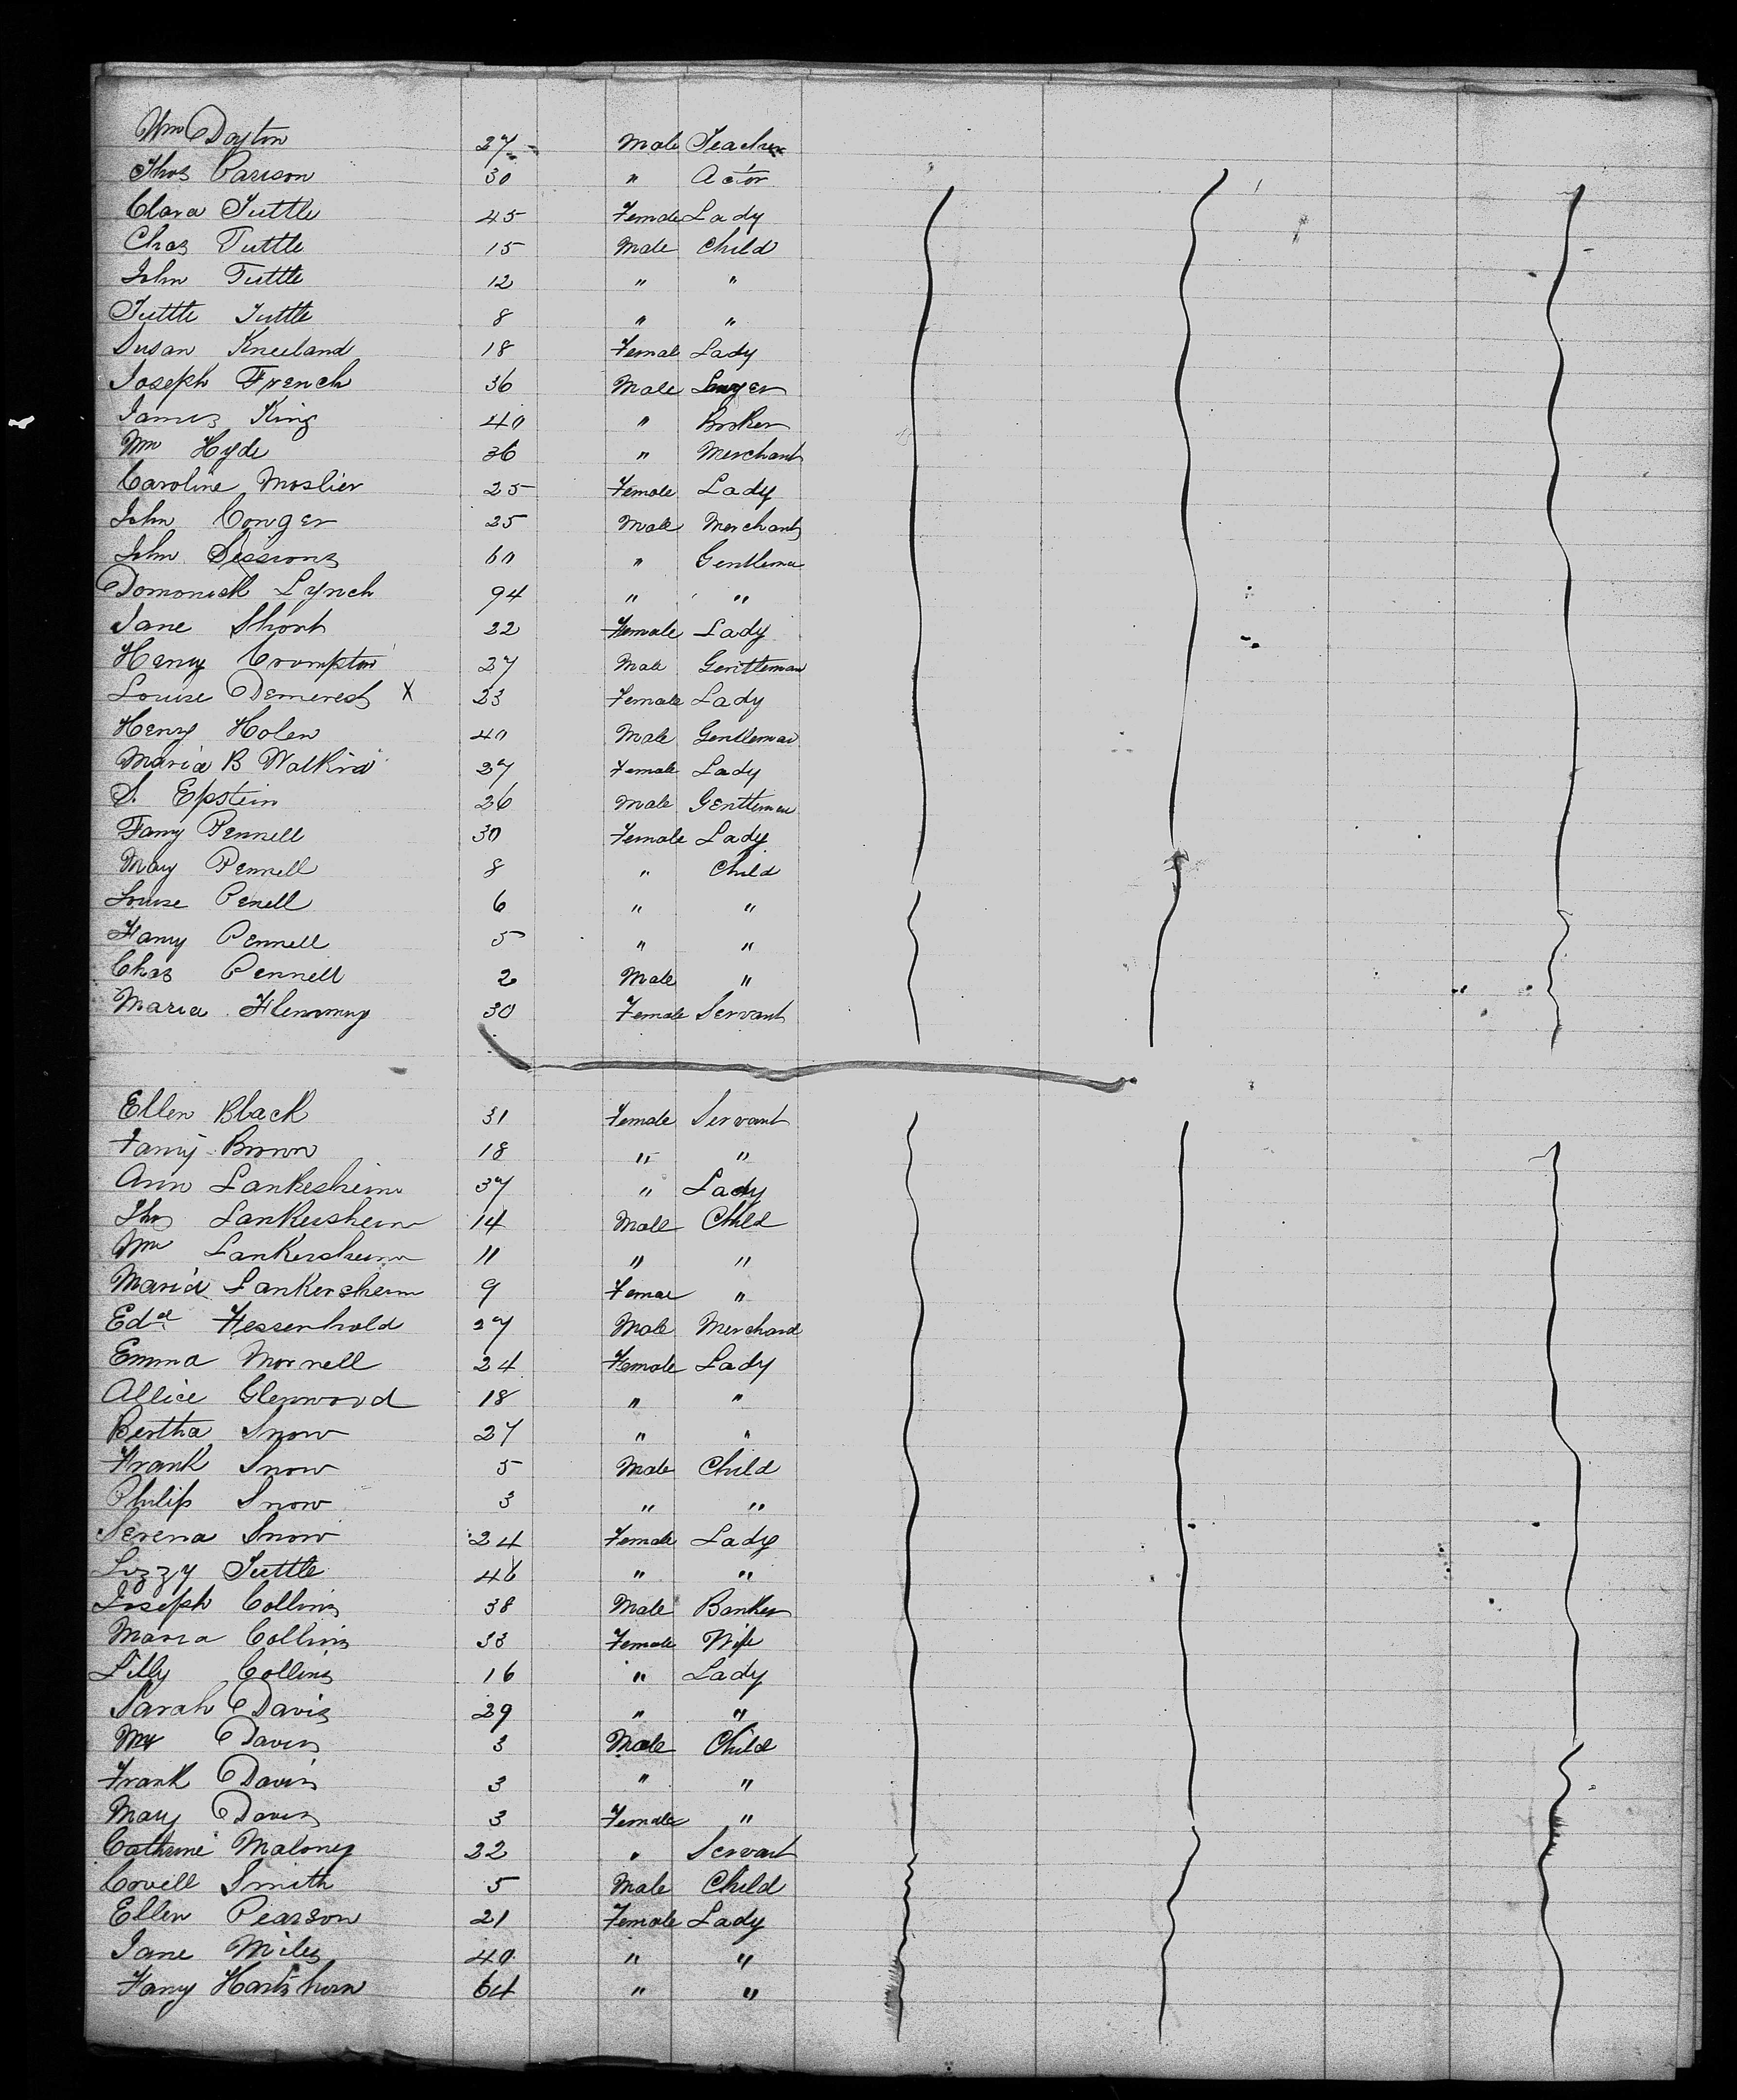 Wm Dayton 27 Male Teacher
Thos Carison 30 " Actor
Clara Tuttle 45 Female Lady
Chas Tuttle 15 Male Child
John Tuttle 12 " "
Tuttle Tuttle 8 " "
Susan Kneeland 18 Femal Lady
Joseph French 36 Male
James King 40 " Broker
Wm Hyde 36 " Merchant
Caroline Moslier 25 Female Lady
John Conger 25 Male Merchant
John Sessions 60 " Gentleman
Domonick Lynch 94 " "
Jane Short 22 Female Lady
Henry Crompton 27 Male Gentleman
Louise Demerest X 23 Female Lady
Henry Holen 40 Male Gentleman
Maria B Watkins 27 Female Lady
S. Epstein 26 Male Gentleman
Fanny Pennell 30 Female Lady
Mary Pennell 8 " Child
Louise Penell 6 " "
Fanny Pennell 5 " "
Chas Pennell 2 Male "
Maria Flemming 30 Female Servant
Ellen Black 31 Female Servant
Fanny Brown 18 " "
Ann Lankesheim 37 " Lady
Thos Lankersheim 14 Male Child
Wm Lankersheim 11 " "
Maria Lankersheim 9 Female "
Edd Hessenhold 27 Male Merchant
Emma Mornell 24 Female Lady
Allice Glenwood 18 " "
Bertha Snow 27 " "
Frank Snow 5 Male Child
Philip Snow 3 " "
Serena Snow 24 Female Lady
Lizzy Tuttle 46 " "
Joseph Collins 38 Male Banker
Maria Collins 33 Female Wife
Lilly Collins 16 " Lady
Sarah Davis 29 " "
Davis 3 Male Child
Frank Davis 3 " "
Mary Davis 3 Female "
Cathrine Maloney 22 " Servant
Covell Smith 5 Male Child
Ellen Pearson 21 Female Lady
Jane Miles 40 " "
Fanny Hartshorn 64 " "